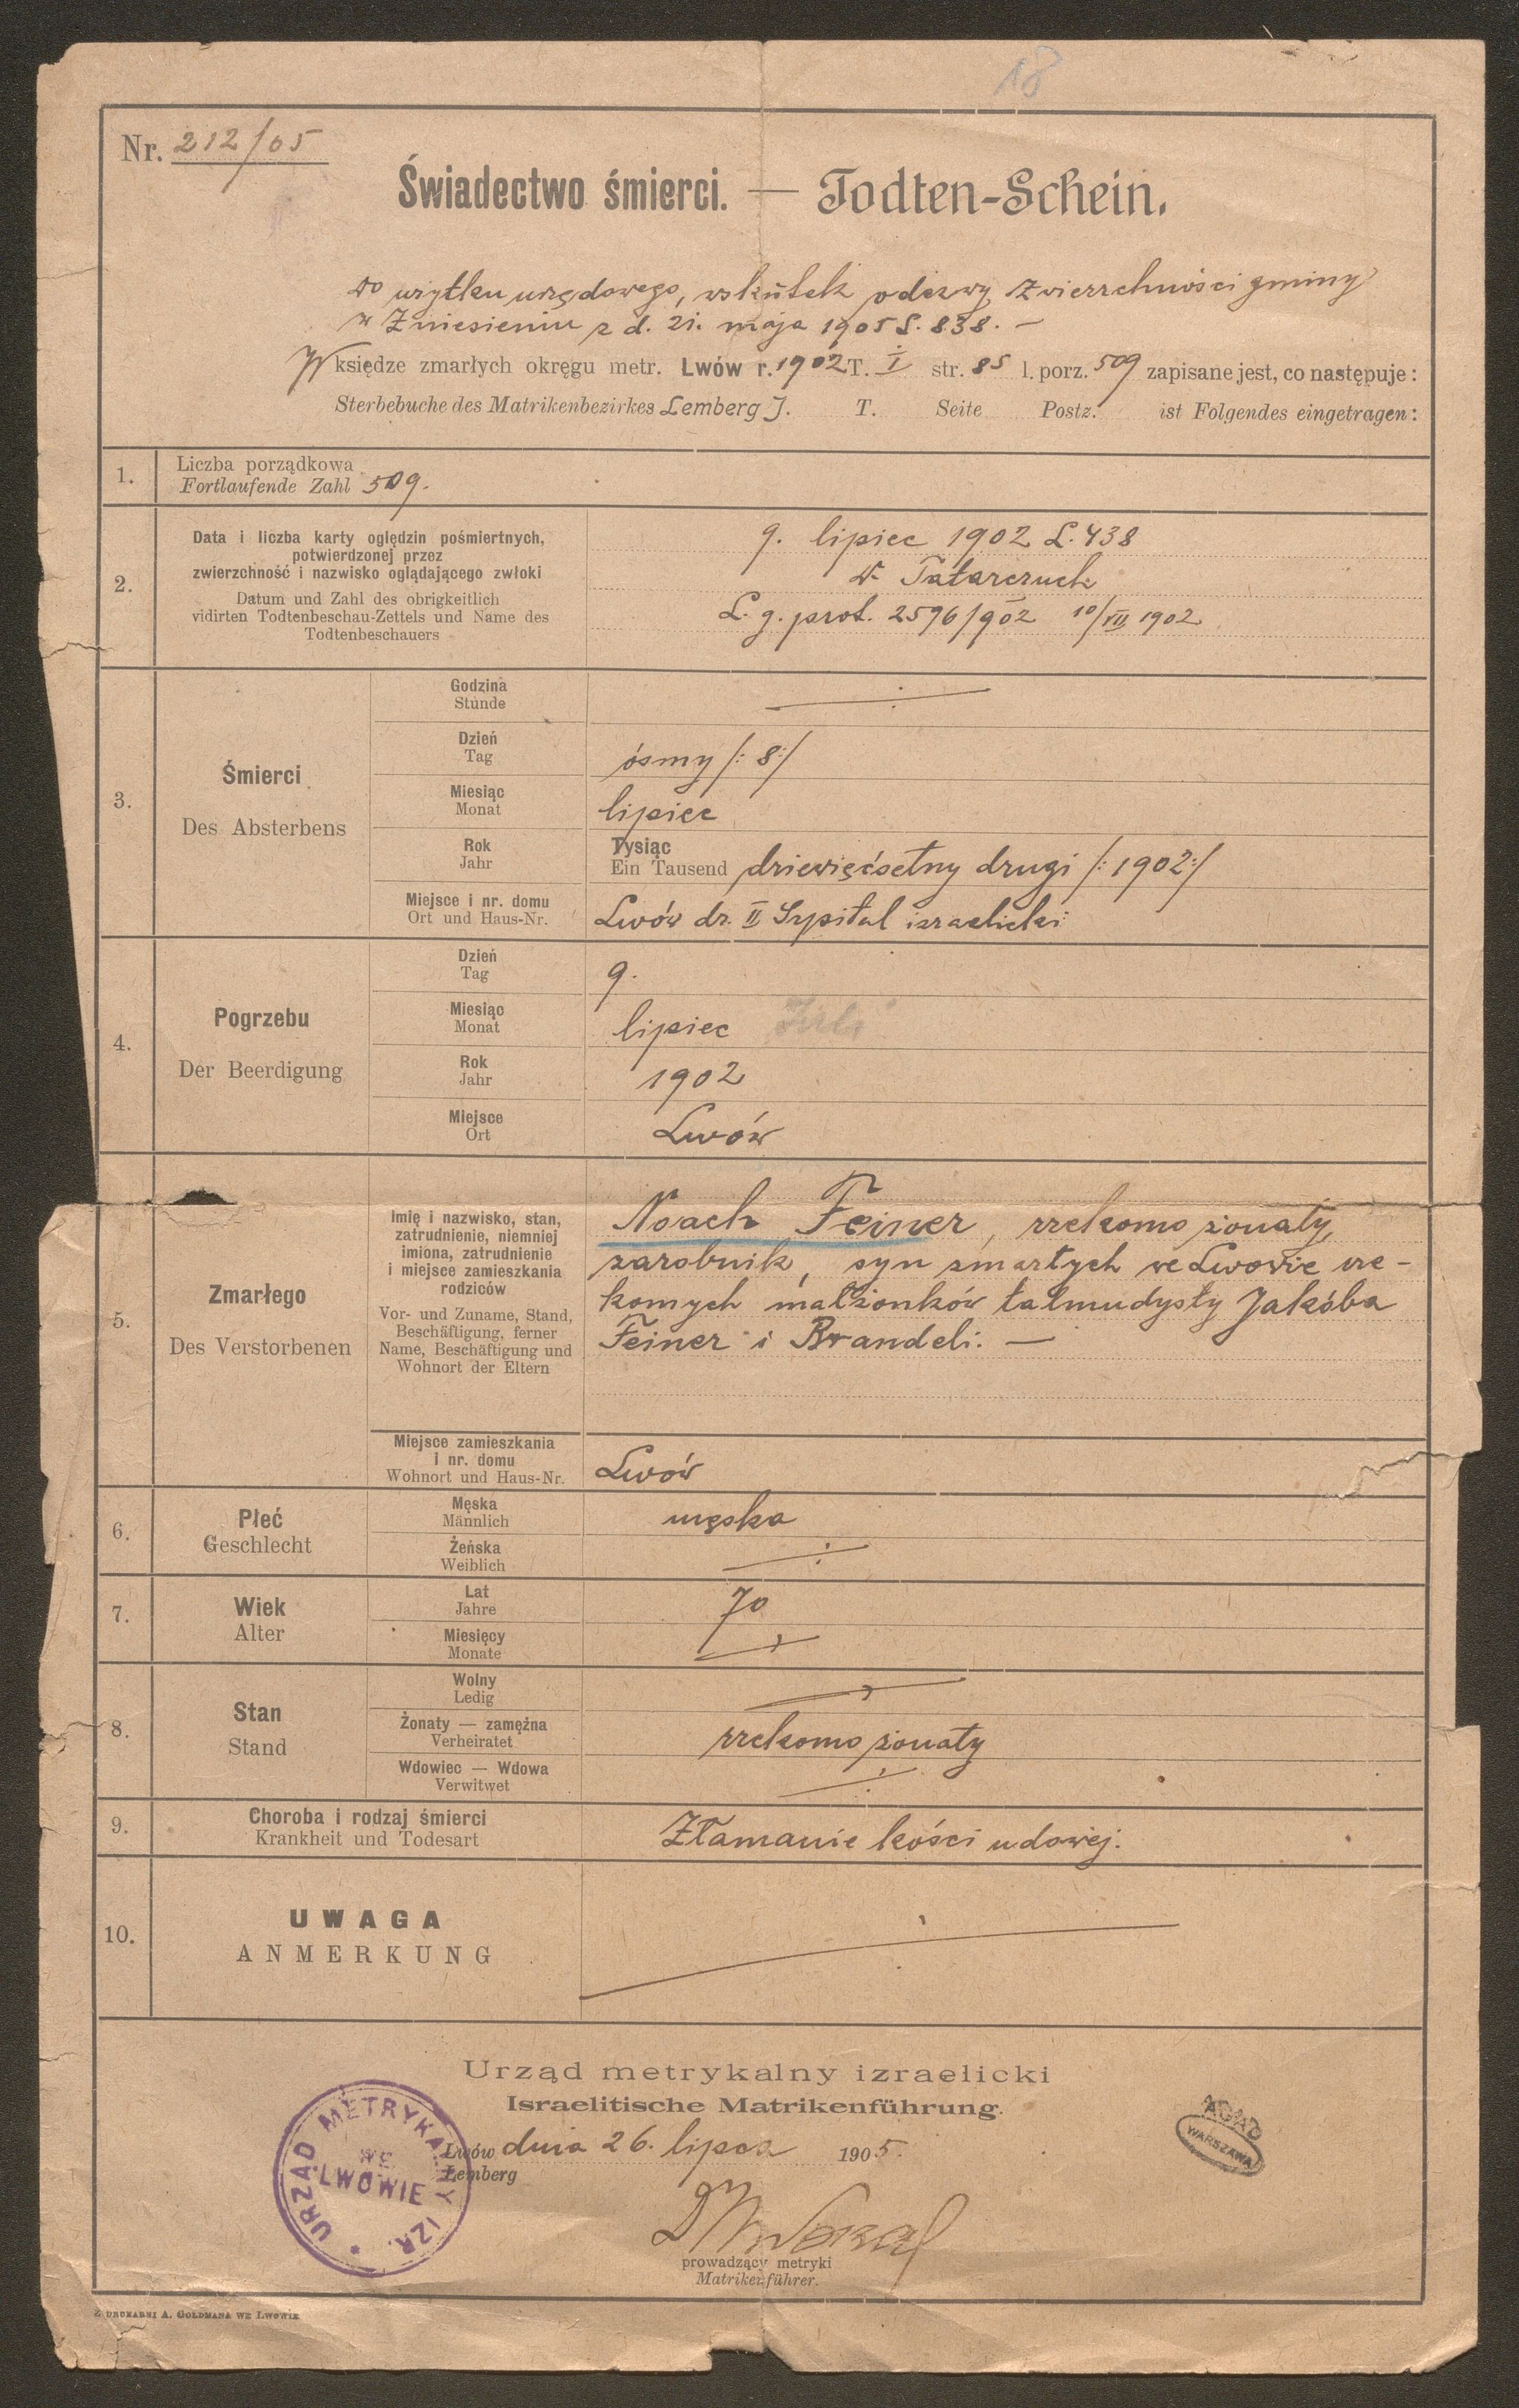 18
Nr. 212/05
Świadectwo śmierci. — Todten-Schein.
do użytku urzędowego, wskutek odezwy Zwierzchności gminy
w Zniesieniu z d. 21. maja 1905 L. 838. —
W księdze zmarłych okręgu metr. Lwów r. 1902 T. I str. 85 l. porz. 509 zapisane jest, co następuje:
Sterbebuche des Matrikenbezirkes Lemberg J. T. Seite Postz. ist Folgendes eingetragen:
1. Liczba porządkowa
Fortlaufende Zahl 509.
2. Data i liczba karty oględzin pośmiertnych,
potwierdzonej przez
zwierzchność i nazwisko oglądającego zwłoki
Datum und Zahl des obrigkeitlich
vidirten Todtenbeschau-Zettels und Name des
Todtenbeschauers
9. lipiec 1902 L. 438
Tatarczuch
L. g. prot. 2596/902 10/VII 1902
3. Śmierci
Des Absterbens
Godzina
Stunde
Dzień
Tag
ósmy /: 8 :/
Miesiąc
Monat
lipiec
Rok
Jahr
Tysiąc
Ein Tausend dziewięćsetny drugi /: 1902 :/
Miejsce i nr. domu
Ort und Haus-Nr.
Lwów dz. II Szpital izraelicki
4. Pogrzebu
Der Beerdigung
Dzień
Tag
9.
Miesiąc
Monat
lipiec
Rok
Jahr
1902
Miejsce
Ort
Lwów
5. Zmarłego
Des Verstorbenen
Imię i nazwisko, stan,
zatrudnienie, niemniej
imiona, zatrudnienie
i miejsce zamieszkania
rodziców
Vor- und Zuname, Stand,
Beschäftigung, ferner
Name, Beschäftigung und
Wohnort der Eltern
Noach Feiner, rzekomo żonaty,
zarobnik, syn zmarłych we Lwowie rze-
komych małżonków talmudysty Jakóba
Feiner i Brandeli. —
Miejsce zamieszkania
i nr. domu
Wohnort und Haus-Nr.
Lwów
6. Płeć
Geschlecht
Męska
Männlich
męska
Żeńska
Weiblich
7. Wiek
Alter
Lat
Jahre
70
Miesięcy
Monate
8. Stan
Stand
Wolny
Ledig
Żonaty — zamężna
Verheiratet
rzekomo żonaty
Wdowiec — Wdowa
Verwitwet
9. Choroba i rodzaj śmierci
Krankheit und Todesart
Złamanie kości udowej.
10. UWAGA
ANMERKUNG
Urząd metrykalny izraelicki
Israelitische Matrikenführung.
Lwów dnia 26. lipca 1905.
Lemberg
URZĄD METRYKALNY IZR.
WE
LWOWIE
AGAD
WARSZAWA
prowadzący metryki
Matrikenführer.
Z DRUKARNI A. GOLDMANA WE LWOWIE